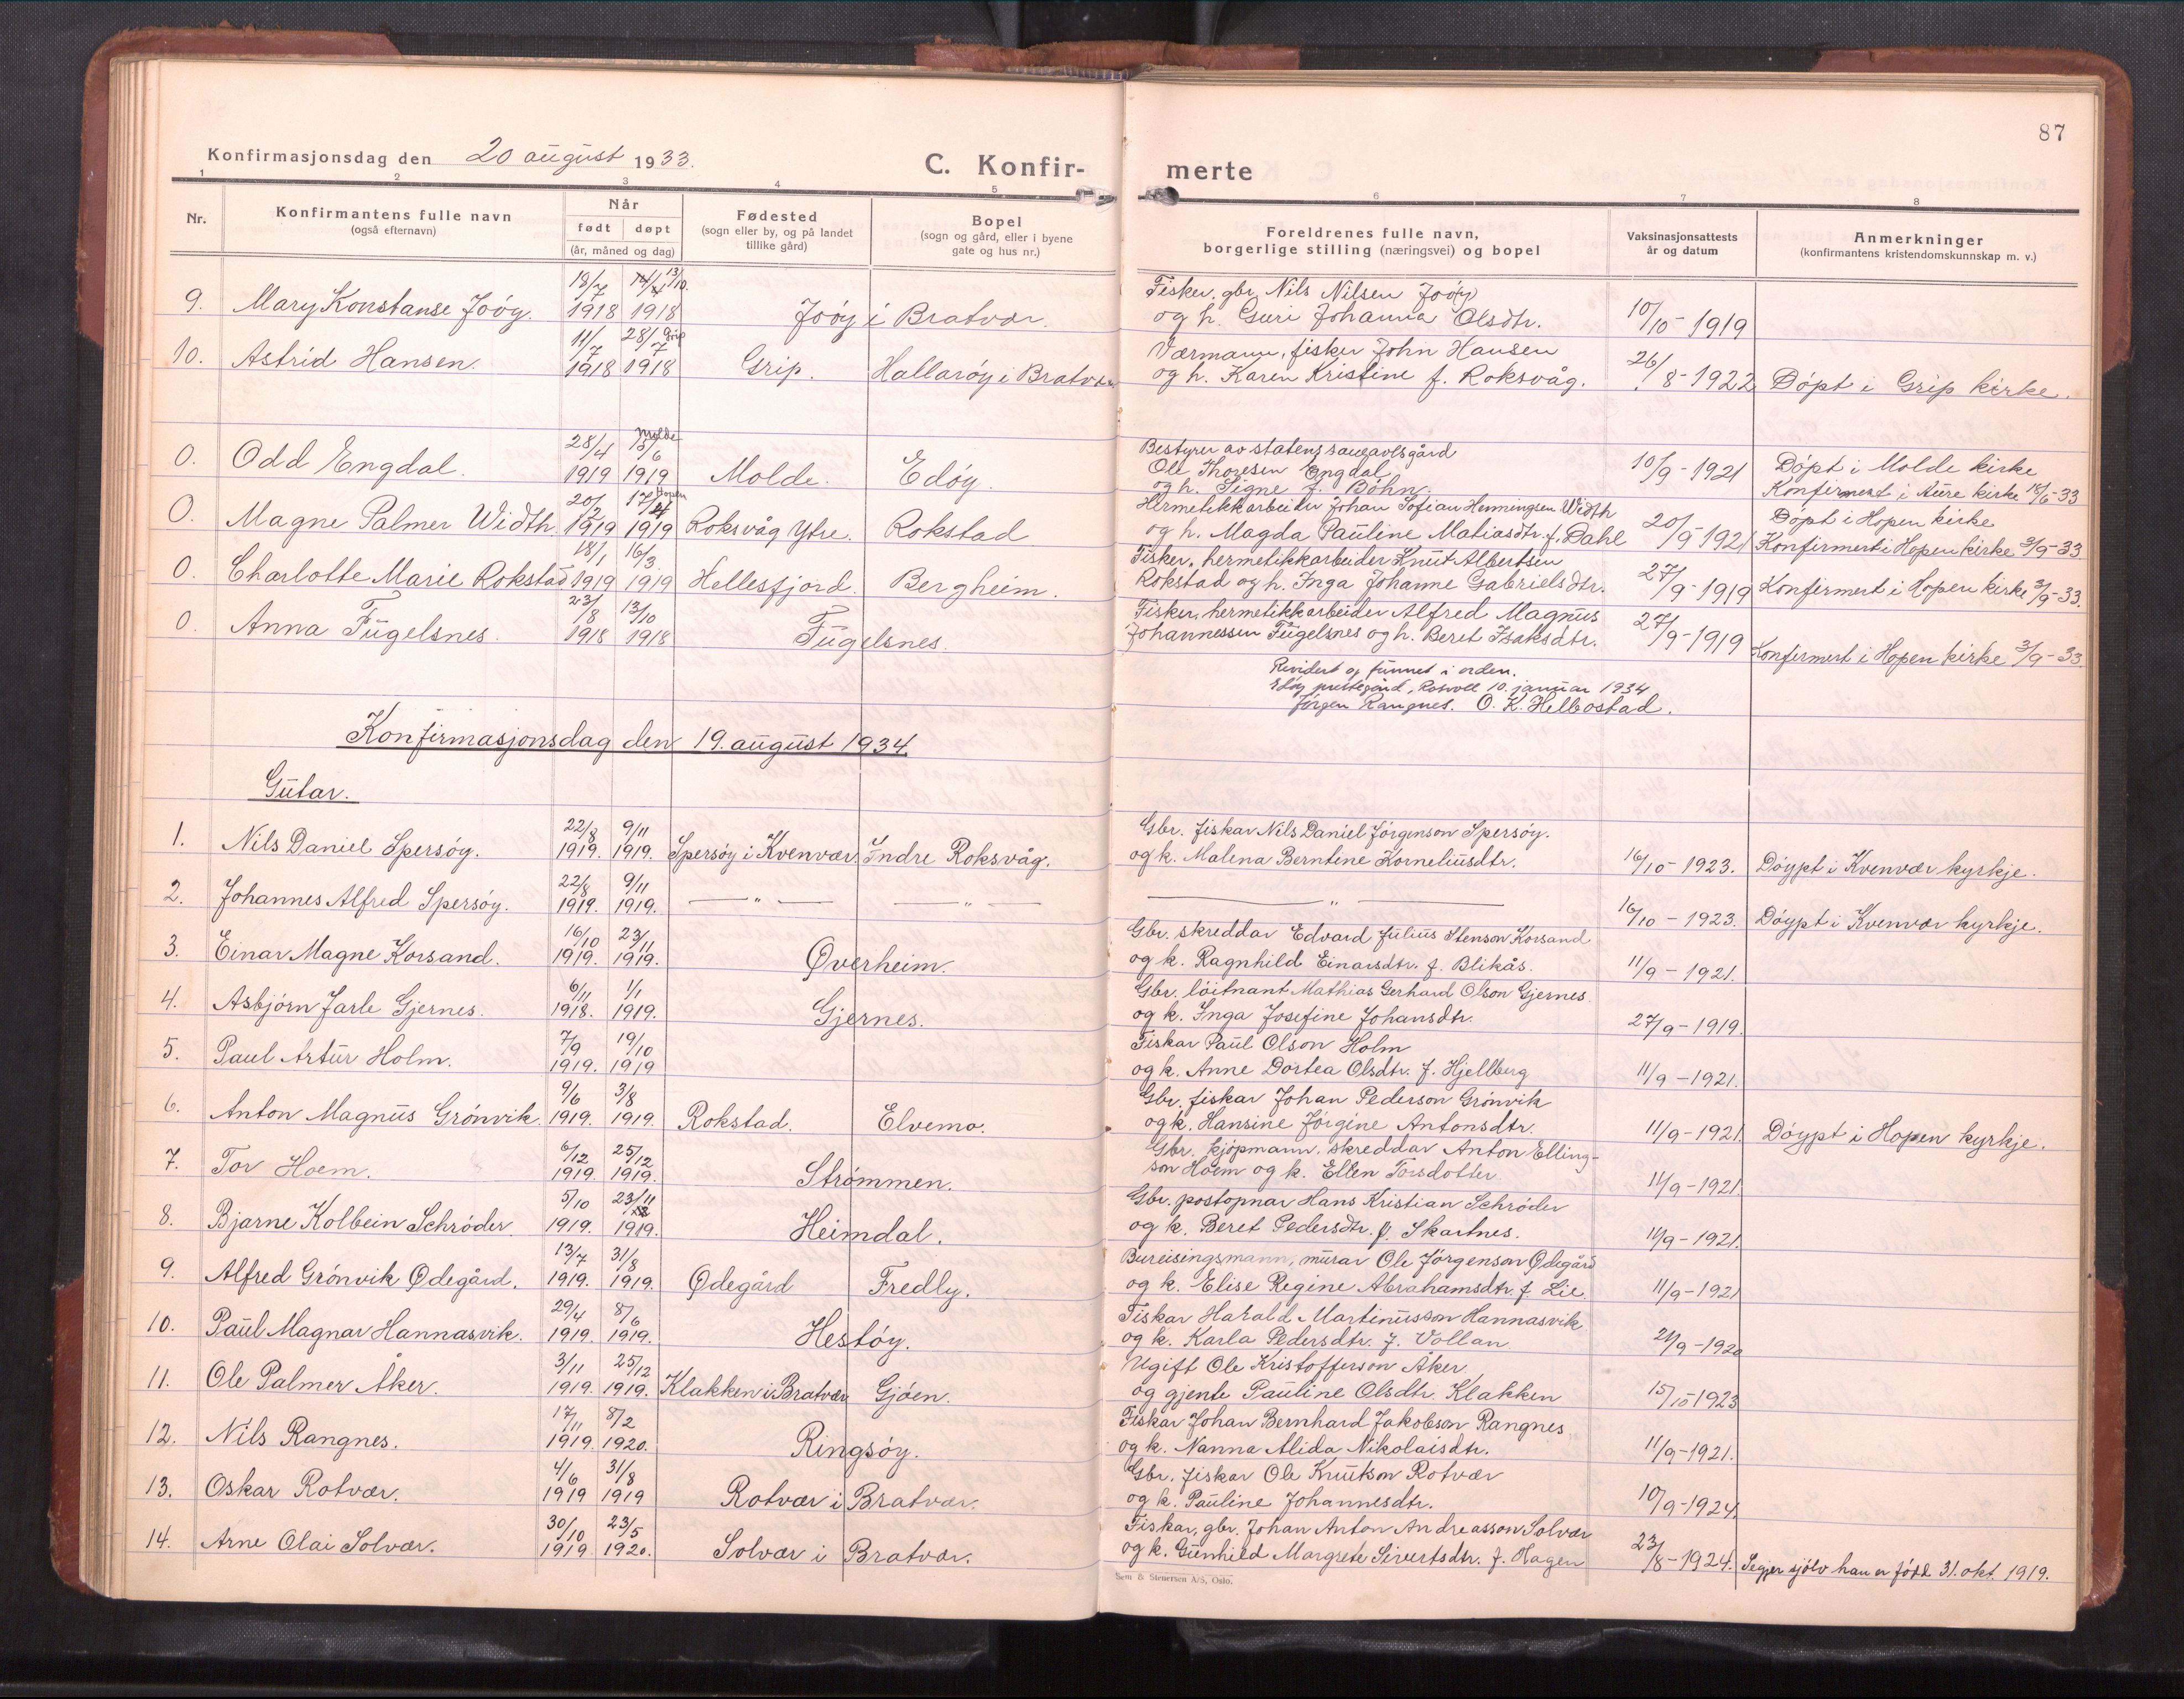 87
Konfirmasjonsdag den 20 august 1933.
C. Konfir-
merte
1 2 3 4 5 6 7 8
Nr.
Konfirmantens fulle navn
(også efternavn)
Når
født døpt
(år, måned og dag)
Fødested
(sogn eller by, og på landet
tillike gård)
Bopel
(sogn og gård, eller i byene
gate og hus nr.)
Foreldrenes fulle navn,
borgerlige stilling (næringsvei) og bopel
Vaksinasjonsattests
år og datum
Anmerkninger
(konfirmantens kristendomskunnskap m. v.)
18/7 13/10 Fisker, gbr. Nils Nilsen Joøy
9. Mary Konstanse Joøy. 1918 1918 Joøy i Bratvær. og h. Guri Johanna Olsdtr. 10/10-1919
11/7 28/7 Grip Værmann, fisker John Hansen
10. Astrid Hansen. 1918 1918 Grip. Hallarøy i Bratvær og h. Karen Kristine f. Roksvåg. 26/8-1922 Døpt i Grip kirke.
28/4 15/6 Molde Bestyrer av statens saueavlsgård
0. Odd Engdal. 1919 1919 Molde. Edøy. Ole Thoresen Engdal 10/9-1921 Døpt i Molde kirke
og h. Signe f. Bøhn. Konfirmert i Aure kirke 18/6-33
20/2 17/4 Hopen Hermetikkarbeider Johan Sofian Henningsen Width Døpt i Hopen kirke
0. Magne Palmer Width. 1919 1919 Roksvåg Ytre. Rokstad og h. Magda Pauline Matiasdtr. f. Dahl 20/9-1921 Konfirmert i Hopen kirke 3/9-33
18/1 16/3 Fisker, hermetikkarbeider Knut Albertsen
0. Charlotte Marie Rokstad 1919 1919 Hellesfjord. Bergheim. Rokstad og h. Inga Johanne Gabrielsdtr. 27/9-1919 Konfirmert i Hopen kirke 3/9-33.
23/8 13/10 Fisker, hermetikkarbeider Alfred Magnus
0. Anna Fugelsnes. 1918 1918 Fugelsnes. Johannessen Fugelsnes og h. Beret Isaksdtr. 27/9-1919 Konfirmert i Hopen kirke 3/9-33
Revidert og funnet i orden.
Edøy prestegård, Rosvoll 10. januar 1934
Jørgen Rangnes. O. K. Helbostad.
Konfirmasjonsdag den 19. august 1934.
Gutar.
22/8 9/11 Gbr. fiskar Nils Daniel Jørgenson Spersøy.
1. Nils Daniel Spersøy. 1919. 1919. Spersøy i Kvenvær. Indre Roksvåg. og k. Malena Berntine Korneliusdtr. 16/10-1923. Døypt i Kvenvær kyrkje.
22/8 9/11
2. Johannes Alfred Spersøy. 1919. 1919. — " — — " — — " — 16/10-1923. Døypt i Kvenvær kyrkje.
16/10 23/11 Gbr. skreddar Edvard Julius Stenson Korsand
3. Einar Magne Korsand. 1919. 1919. Øverheim. og k. Ragnhild Einarsdtr. f. Blikås. 11/9-1921.
6/11 1/1 Gbr. løitnant Mathias Gerhard Olson Gjernes
4. Asbjørn Jarle Gjernes. 1918. 1919. Gjernes. og k. Inga Josefine Johansdtr. 27/9-1919.
7/9 19/10 Fiskar Paul Olson Holm
5. Paul Artur Holm. 1919. 1919 og k. Anne Dortea Olsdtr. f. Hjellberg 11/9-1921.
9/6 3/8 Gbr. fiskar Johan Pederson Grønvik
6. Anton Magnus Grønvik. 1919. 1919. Rokstad. Elvemo. og k. Hansine Jørgine Antonsdtr. 11/9-1921. Døypt i Hopen kyrkje.
6/12 25/12 Gbr. kjøpmann, skreddar Anton Elling-
7. Tor Hoem. 1919. 1919. Strømmen. son Hoem og k. Ellen Torsdotter 11/9-1921.
5/10 23/11 Gbr. postopnar Hans Kristian Schrøder
8. Bjarne Kolbein Schrøder. 1919. 1919. Heimdal. og k. Beret Pedersdtr. f. Skartnes. 11/9-1921.
13/7 31/8 Bureisingsmann, murar Ole Jørgenson Ødegård
9. Alfred Grønvik Ødegård. 1919. 1919. Ødegård Fredly. og k. Elise Regine Abrahamsdtr. f. Lie. 11/9-1921
29/4 8/6 Fiskar Harald Martinusson Hannasvik
10. Paul Magnar Hannasvik. 1919. 1919. Hestøy. og k. Karla Pedersdtr. f. Vollan 21/9-1920
3/11 25/12 Ugift Ole Kristofferson Åker
11. Ole Palmer Åker. 1919. 1919. Klakken i Bratvær Gjøen. og gjente Pauline Olsdtr. Klakken 15/10 1923
17/11 8/2 Fiskar Johan Bernhard Jakobson Rangnes
12. Nils Rangnes. 1919. 1920. Ringsøy. og k. Nanna Alida Nikolaisdtr. 11/9-1921.
4/6 31/8 Gbr. fiskar Ole Knutson Rotvær
13. Oskar Rotvær. 1919 1919 Rotvær i Bratvær. og k. Pauline Johannesdtr. 10/9-1924.
30/10 23/5 Fiskar, gbr. Johan Anton Andreasson Solvær
14. Arne Olai Solvær. 1919 1920. Solvær i Bratvær. og k. Gunhild Margrete Sivertsdtr. f. Hagen 23/8-1924. Segjer sjølv han er fødd 31. okt. 1919.
Sem & Stenersen A/S, Oslo.